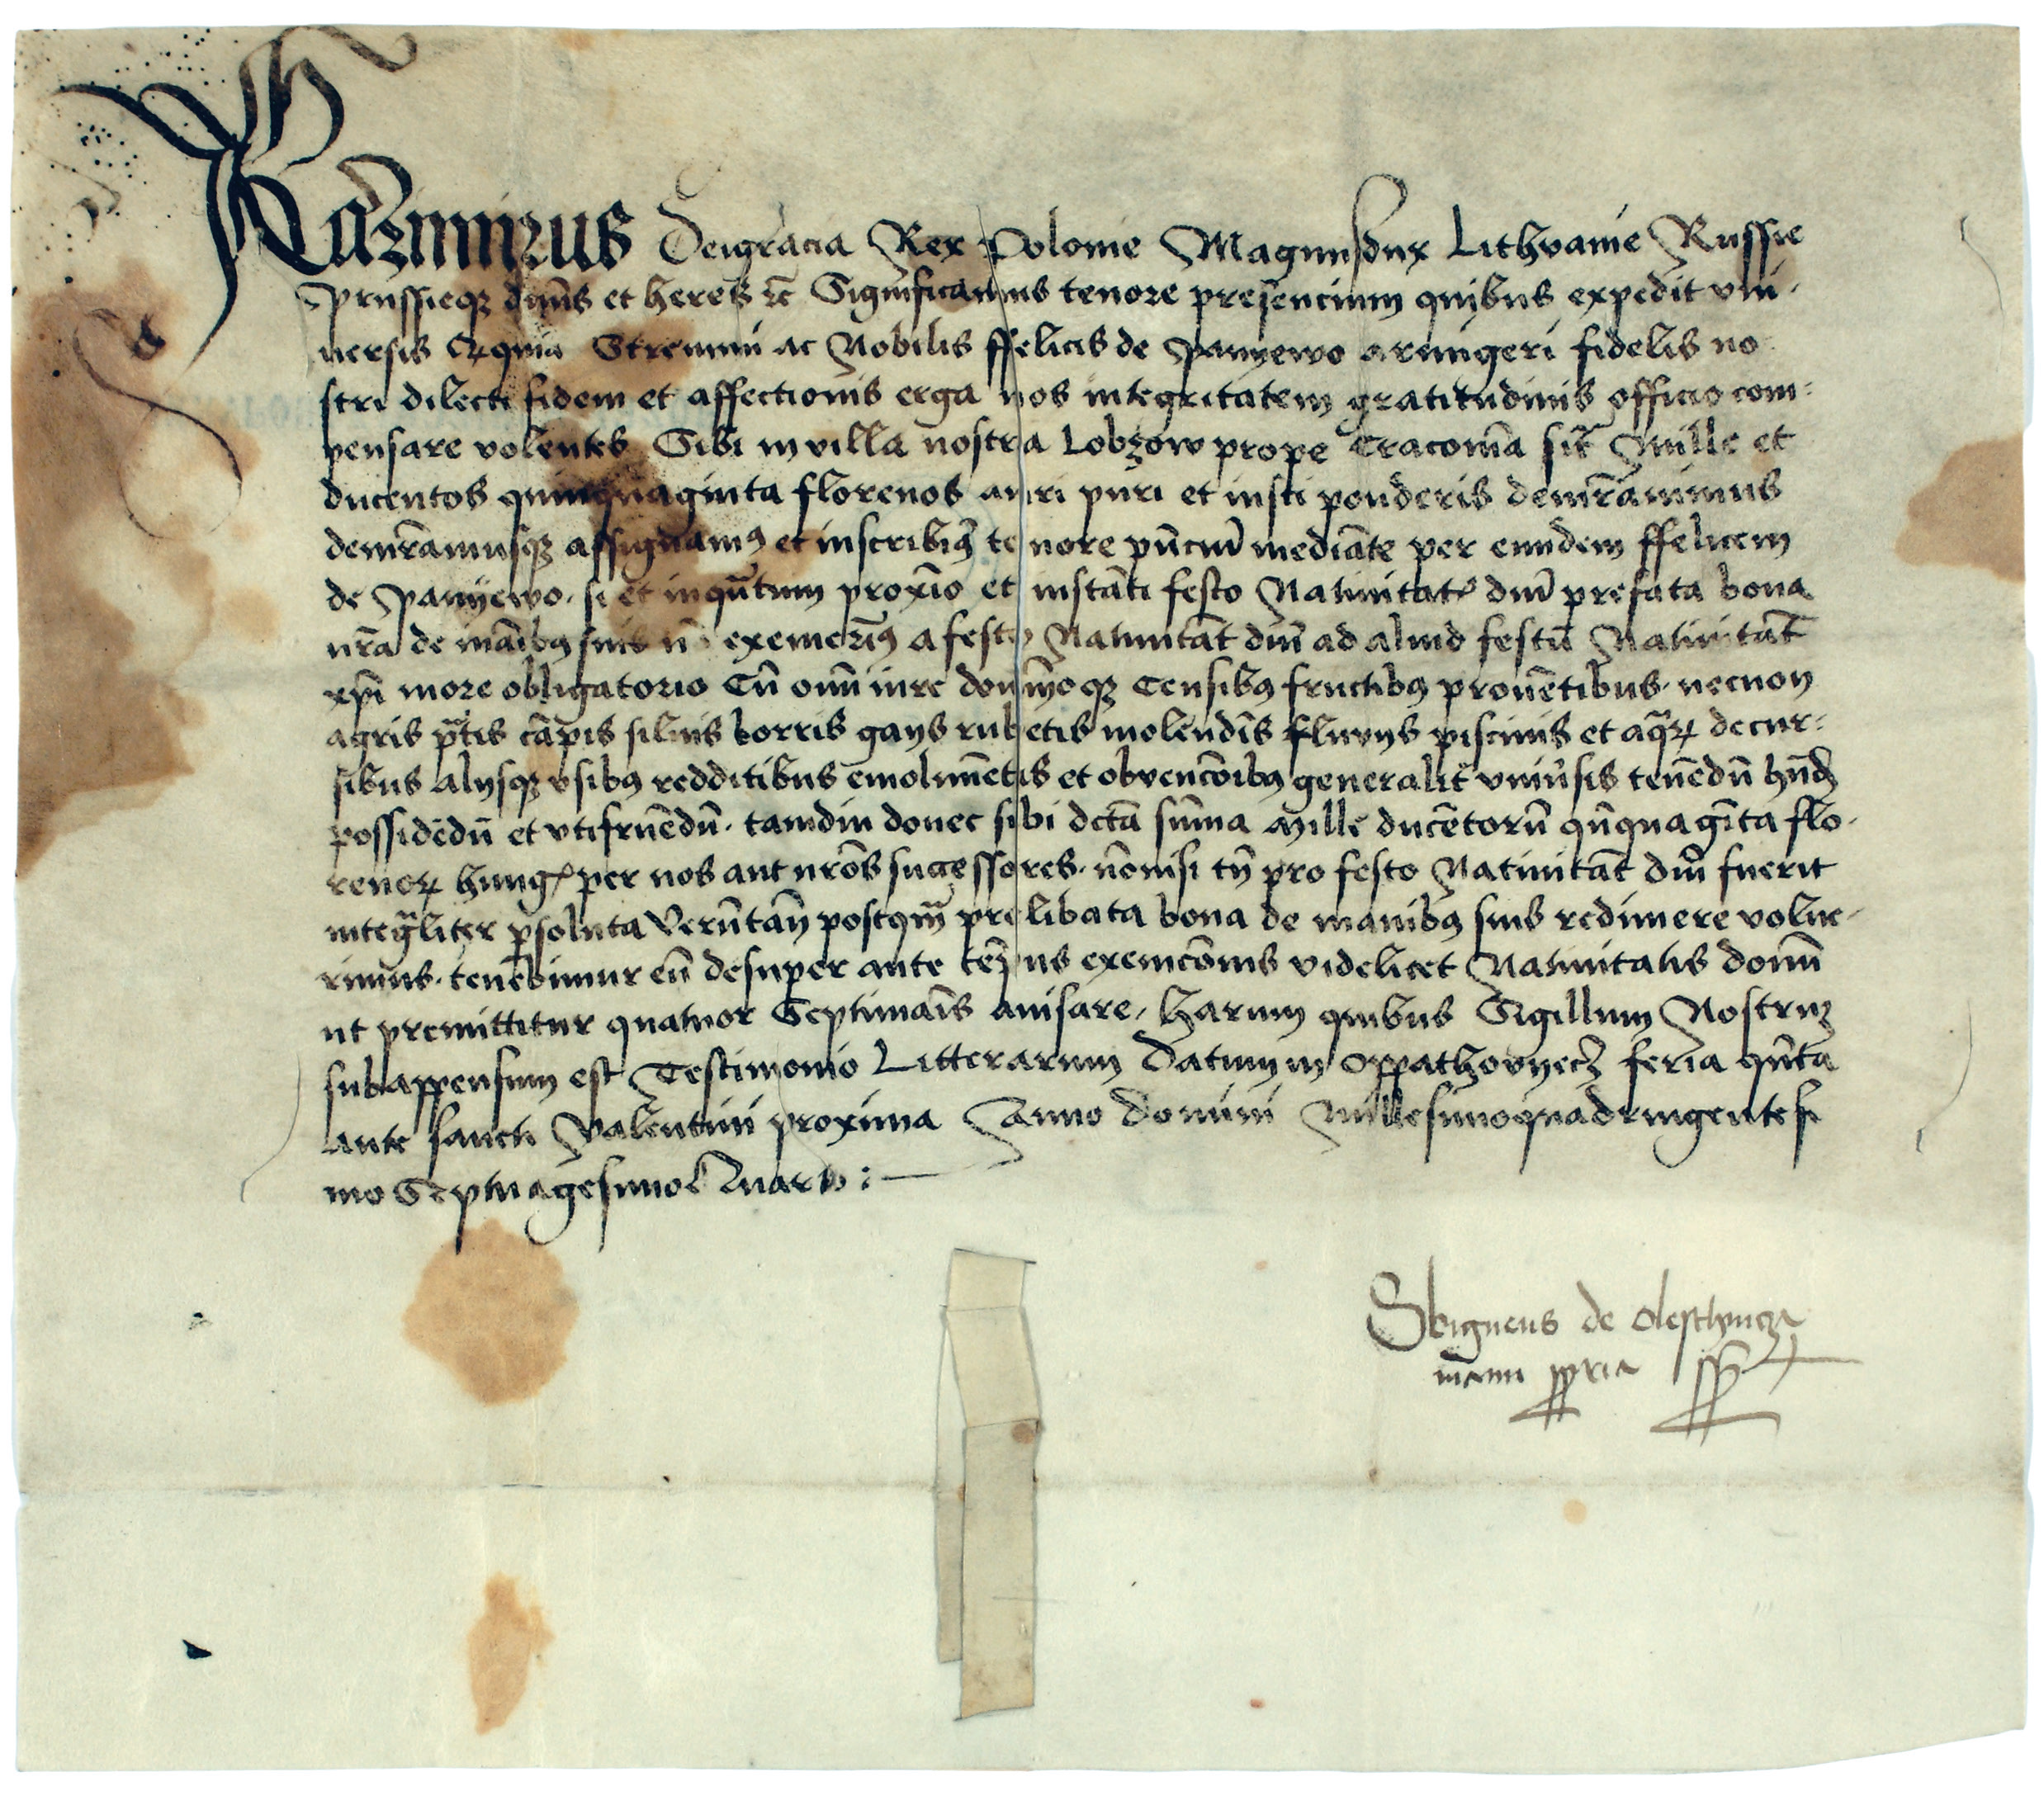 Kazimirus Deigracia Rex Polonie Magnusdux Lithvanie Russie
Prussieqz dn̄s et heres ⁊c̄ Significamus tenore presencium quibus expedit vni-
uersis Et quia Strenui ac Nobilis ffelicis de Panyewo armigeri fidelis no-
stri dilecti fidem et affectionis erga nos integritatem gratitudinis officio com-
pensare volentes Sibi in villa nostra Lobzow prope Cracouiā Mille et
ducentos quinquaginta florenos auri puri et iusti ponderis demr̄auimus
demr̄amusqz assignamꝰ et inscribimꝰ tenore pn̄ciū mediāte per eundem ffelicem
de Panyewo, si et inqūtum proxīo et instāti festo Natiuitatꝭ dnī prefata bona
nr̄a de māibꝰ suis nō exemerīꝰ a festo Natiuitat̄ dnī ad aliud festū Natiuitat̄
xpī more obligatorio Cū omī iure dominioqz Censibꝰ fructibꝰ prouētibus necnon
agris pᵃtis cāpis siluis borris gays rubetis molendīs fluuys piscinis et aqᵃꝝ decur-
sibus alysqz vsibꝰ redditibus emolumētis et obuencōibꝰ generalit̄ vniūsis tenēdū hn̄d
possidēdū et vtifruēdū. tamdiu donec sibi dctā sūma Mille ducētorū qūquagīta flo-
renoꝝ hungꝭ per nos aut nrōs successores. nōnisi tn̄ pro festo Natiuitat̄ dnī fuerit
integᵃliter ꝑsoluta Verūtān̄ postqᵃm prelibata bona de manibꝰ suis redimere volue-
rimus. tenebimur eū desuper ante tēpus exemcōnis videlicet Natiuitatis dominī
ut premittitur quatuor Septimaīs auisare, Harum quibus Sigillum Nostruz
subappensum est Testimonio Litterarum Datum in Oppathovyecz feria qūta
ante sancti Valentini proxima Anno domini Millesimoquadringentesi
mo Septuagesimo Quarto :—
Sbigneus de Oleschnicza
manu ꝓpria